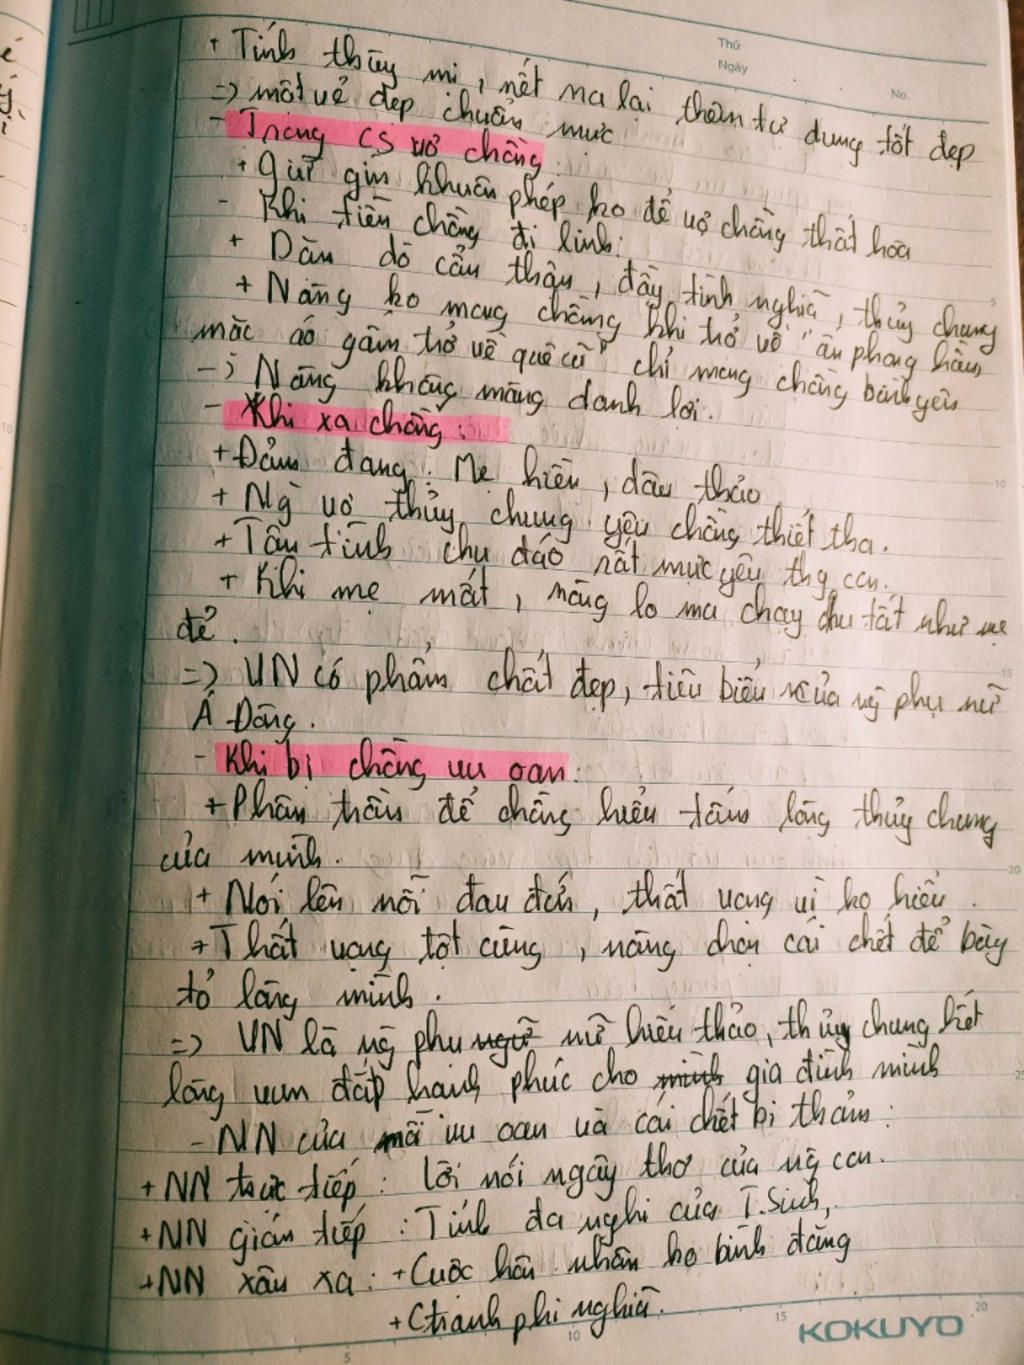 Thứ
Ngày
No.
+ Tính thùy mị, nết na lại thêm tư dung tốt đẹp
=> một vẻ đẹp chuẩn mực
- Trong CS vợ chồng:
+ Giữ gìn khuôn phép ko để vợ chồng thất hòa
- Khi tiễn chồng đi lính:
+ Dặn dò cẩn thận, đầy tình nghĩa, thủy chung
+ Nàng ko mong chồng khi trở về "ấn phong hầu,
mặc áo gấm trở về quê cũ" chỉ mong chồng bình yên
-> Nàng không màng danh lợi.
- Khi xa chồng:
+ Đảm đang: Mẹ hiền, dâu thảo
+ Ng vợ thủy chung yêu chồng thiết tha.
+ Tận tình chu đáo rất mực yêu thg con.
+ Khi mẹ mất, nàng lo ma chay chu tất như mẹ
đẻ.
=> VN có phẩm chất đẹp, tiêu biểu của ng phụ nữ
Á Đông.
- Khi bị chồng vu oan:
+ Phân trần để chồng hiểu tấm lòng thủy chung
của mình.
+ Nói lên nỗi đau đớn, thất vọng vì ko hiểu.
+ Thất vọng tột cùng, nàng chọn cái chết để bày
tỏ lòng mình.
=> VN là ng phụ ngữ nữ hiếu thảo, thủy chung hết
lòng vun đắp hạnh phúc cho mình gia đình mình
- NN của nỗi vu oan và cái chết bi thảm:
+ NN trực tiếp: lời nói ngây thơ của ng con.
+ NN gián tiếp: Tính đa nghi của T.Sinh,
+ NN xâu xa: + Cuộc hôn nhân ko bình đẳng
+ Ctranh phi nghĩa.
5
10
15
20
KOKUYO